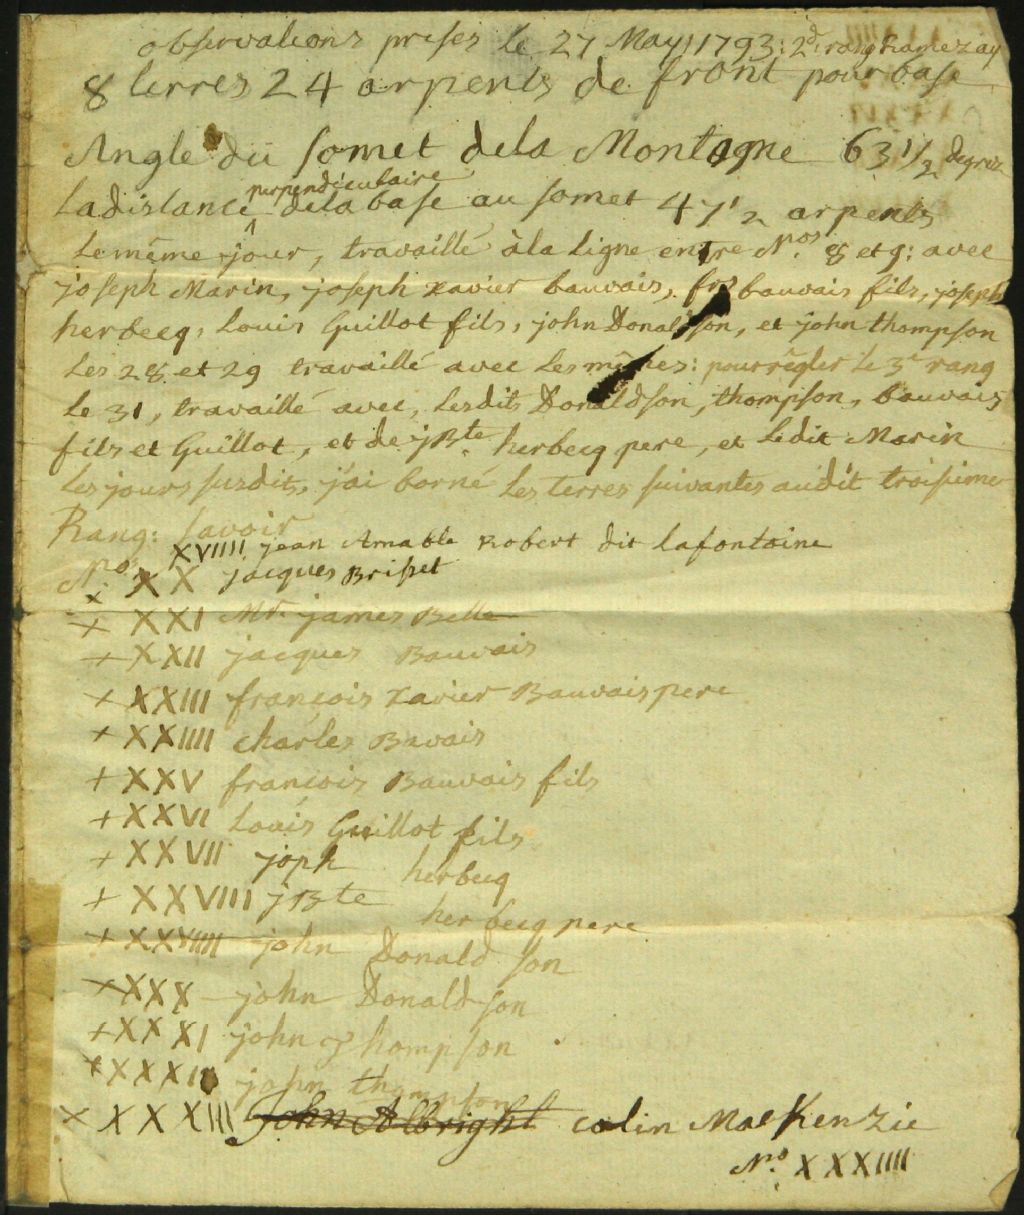 observations prises le 27 May 1793: 2d. rang Ramezay
8 terres 24 arpents de front pour base
Angle du somet dela Montagne 63 1/2 degrez
La distance perpendiculaire dela base au somet 47 1/2 arpents
Le même jour, travaillé à la ligne entre Nos. 8 et 9: avec
joseph Marin, joseph xavier bauvais, frs bauvais fils, joseph
herbecq, Louis Guillot fils, john Donaldson, et john thompson
Les 28 et 29 travaillé avec les mêmes: pour règler le 3e rang
Le 31, travaillé avec, lesdits Donaldson, thompson, bauvais
fils et Guillot, et de jBte. herbecq pere, et Ledit Marin
Les jours susdits, j'ai borné Les terres suivantes audit troisieme
Rang: savoir
XVIIII jean Amable Robert dit Lafontaine
Nos. x XX jacques Brisset
+ XXI Mr. james Belle
+ XXII jacques Bauvais
+ XXIII françois xavier Bauvais pere
+ XXIIII charles Bavais
+ XXV francois Bauvais fils
+ XXVI Louis Guillot fils
+ XXVII joph herbecq
+ XXVIII jBte herbecq pere
+ XXVIIII john Donaldson
+ XXX john Donaldson
+ XXXI john Thompson
+ XXXII john thompson
x XXXIII John Albright colin MacKenzie
No. XXXIIII